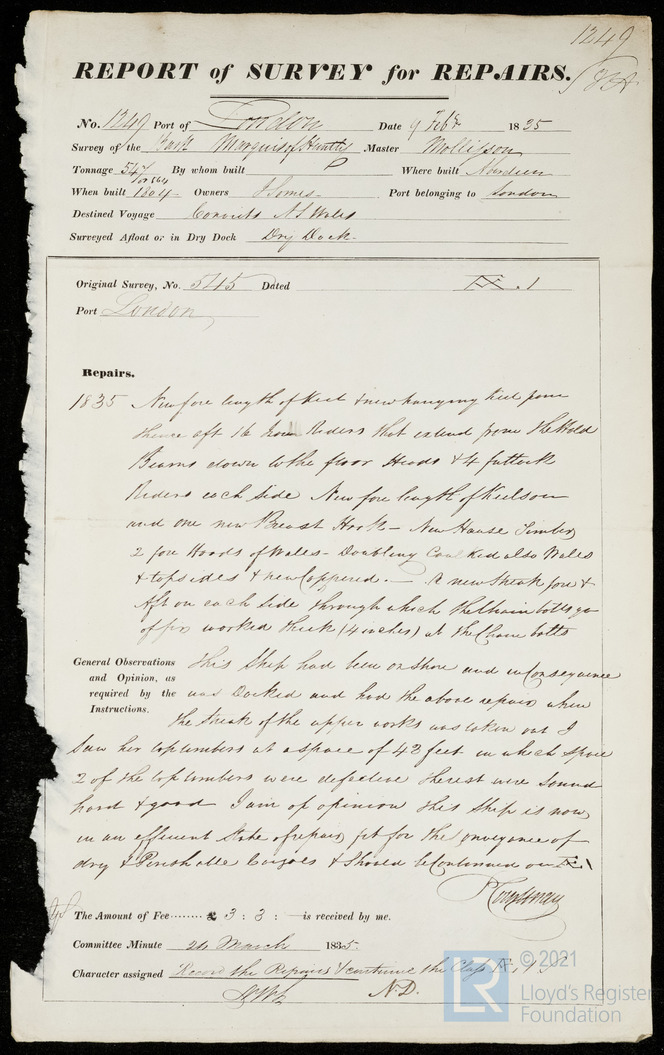 1249
REPORT of SURVEY for REPAIRS.
No. 1249 Port of London Date 9 Feby 1835
Survey of the Bark Marquis of Huntly Master Mollisson
Tonnage 547 By whom built P Where built Aberdeen
When built 1804 Owners Port belonging to London
Destined Voyage Convicts N S Wales
Surveyed Afloat or in Dry Dock Dry Dock
Original Survey, No. 545 Dated Æ . 1
Port London
Repairs.
1835 New fore length of Keel & new hanging keel from
thence aft 16 Riders that extend from the Hold
Beams down to the floor Heads & 4 futtock
Riders each side New fore length of Keelson
and one new Breast Hook - New Hause Timber
2 fore Hoods of Wales - Doubling Caulked also Wales
& topsides & new Coppered. — A new Streak fore &
Aft on each side through which the Chain bolts go
of fir worked thick (4 inches) at the Chain bolts
General Observations and Opinion, as required by the Instructions.
This Ship had been on shore and in Consequence
was Docked and had the above repairs when
the Streak of the upper works was taken out I
Saw her toptimbers at a space of 42 feet in which space
2 of the toptimbers were defective the rest were Sound
hard & good I am of opinion this Ship is now
in an efficient State of repair, fit for the conveyance of
dry & Perishable Cargoes & Should be Continued on Æ 1
The Amount of Fee £ 3 : 3 : — is received by me.
Committee Minute 24 March 1835.
Character assigned Record the Repairs & continue the Class Æ 1
N.D.
LR © 2021
Lloyd's Register
Foundation